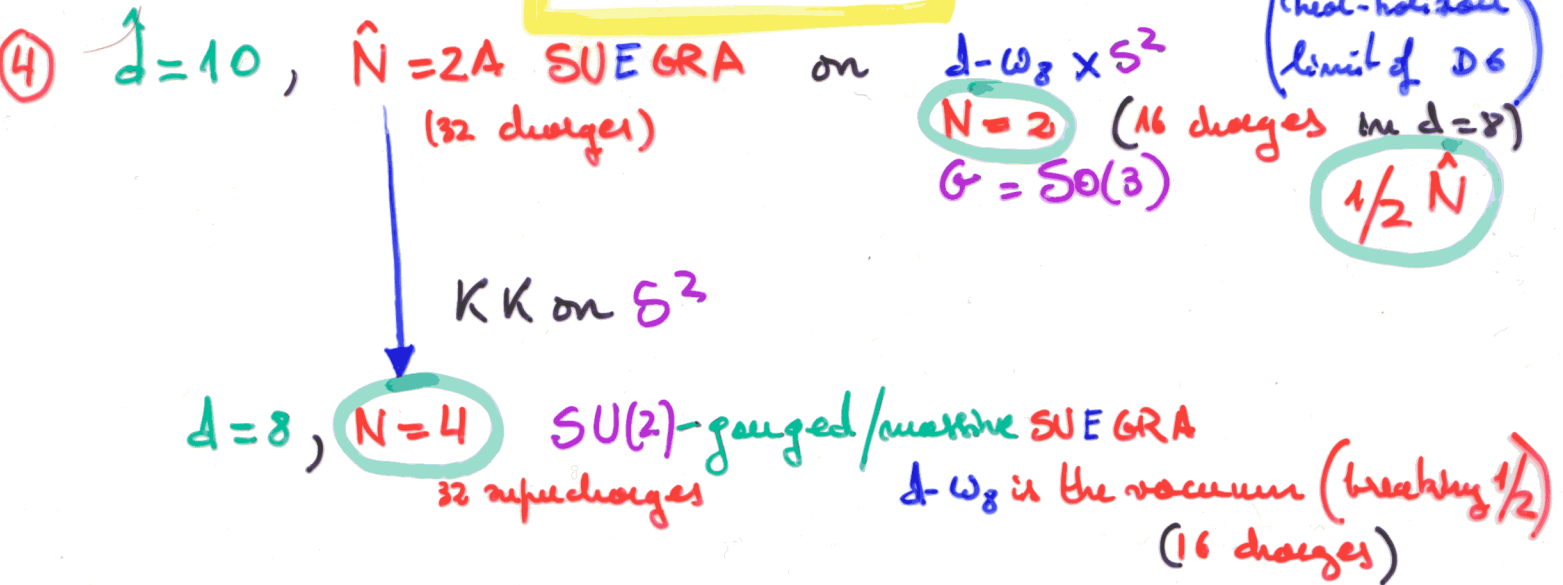 (near-horizon
④ d̂=10, N̂=2A SUEGRA on d-ω₈ x S² limit of D6)
(32 charges) N=2 (16 charges in d=8)
G = SO(3) 1/2 N̂
KK on S²
d=8, N=4 SU(2)-gauged/massive SUEGRA
32 supercharges d-ω₈ is the vacuum (breaking 1/2)
(16 charges)